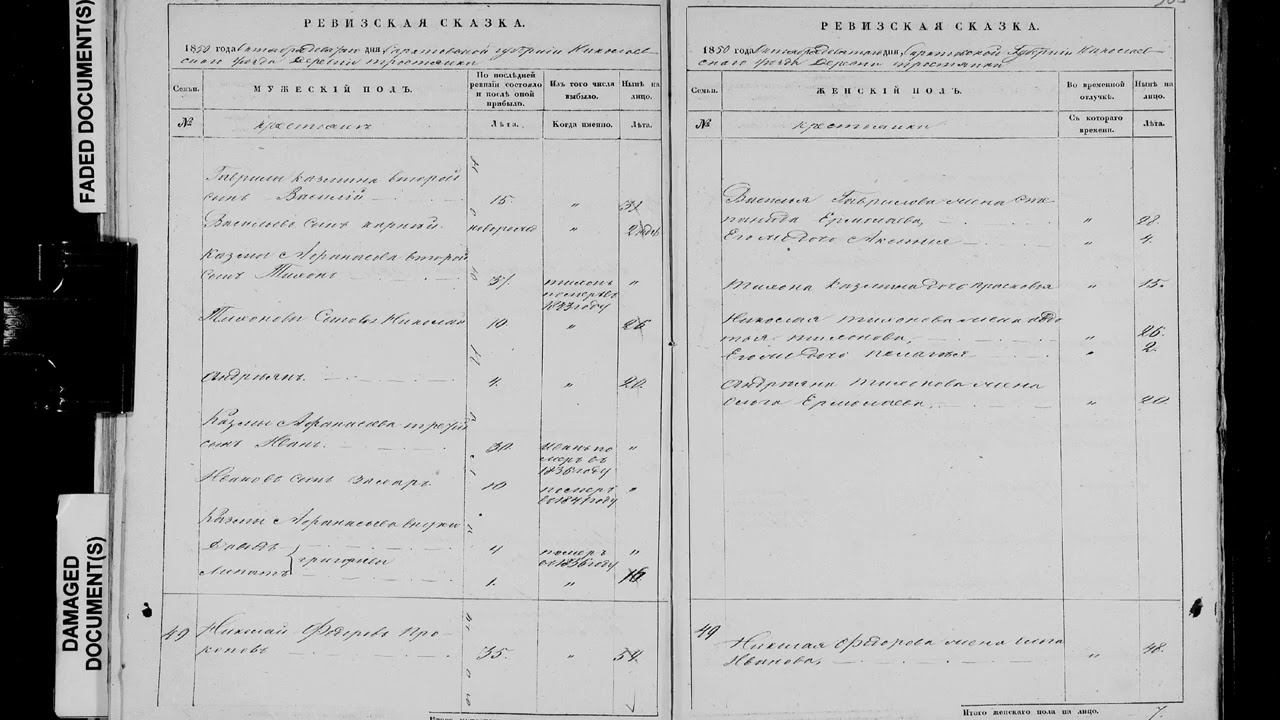 FADED DOCUMENT(S)
DAMAGED
DOCUMENT(S)
РЕВИЗСКАЯ СКАЗКА.
1850 года Октября девятаго дня Саратовской губернии Николаев-
скаго уезда Деревни Тростянки
Семьи.
МУЖЕСКІЙ ПОЛЪ.
По последней
ревизіи состояло
и послѣ оной
прибыло.
Изъ того числа
выбыло.
Нынѣ на
лицо.
№
крестьянъ
Лѣта.
Когда именно.
Лѣта.
Гаврилы Казмина второй
сынъ Василій 15. " 31
Васильевъ сынъ новорожд "
Казмы Афанасьева второй
сынъ Тихон 37. тихонъ "
померъ въ
1843 году
Тихоновы Сыновья Николай 10. " 26
Андриянъ. 4. " 20.
Казмы Афанасьева третій
сынъ Иванъ. 30. иванъ по "
меръ въ
1836 году
Ивановъ сынъ 10 померъ "
въ 1841 году
Казмы Афанасьева внуки
Давыдъ 4 померъ "
въ 1836 году
григорьевы
Липатъ 1. " 16
49 Николай Федоровъ Про-
коповъ 35. " 54.
РЕВИЗСКАЯ СКАЗКА.
1850 года Октября девятаго дня Саратовской Губерніи Николаев-
скаго уезда Деревни Тростянки
Семьи.
ЖЕНСКІЙ ПОЛЪ.
Во временной
отлучкѣ.
Нынѣ на
лицо.
№
крестьянки
Съ котораго
времени.
Лѣта.
Василья Гаврилова жена Сте-
панида Ермолаева, " 28.
Его же дочь Аксинья " 4.
Тихона Казмина дочь Прасковья " 15.
Николая Тихонова жена Авдо-
тья " 26.
Его же дочь Пелагея " 2.
Андрияна Тихонова жена
Ольга Ермолаева, " 20.
49 Николая Федорова жена
Иванова, " 48.
Итого женскаго пола на лицо. 7